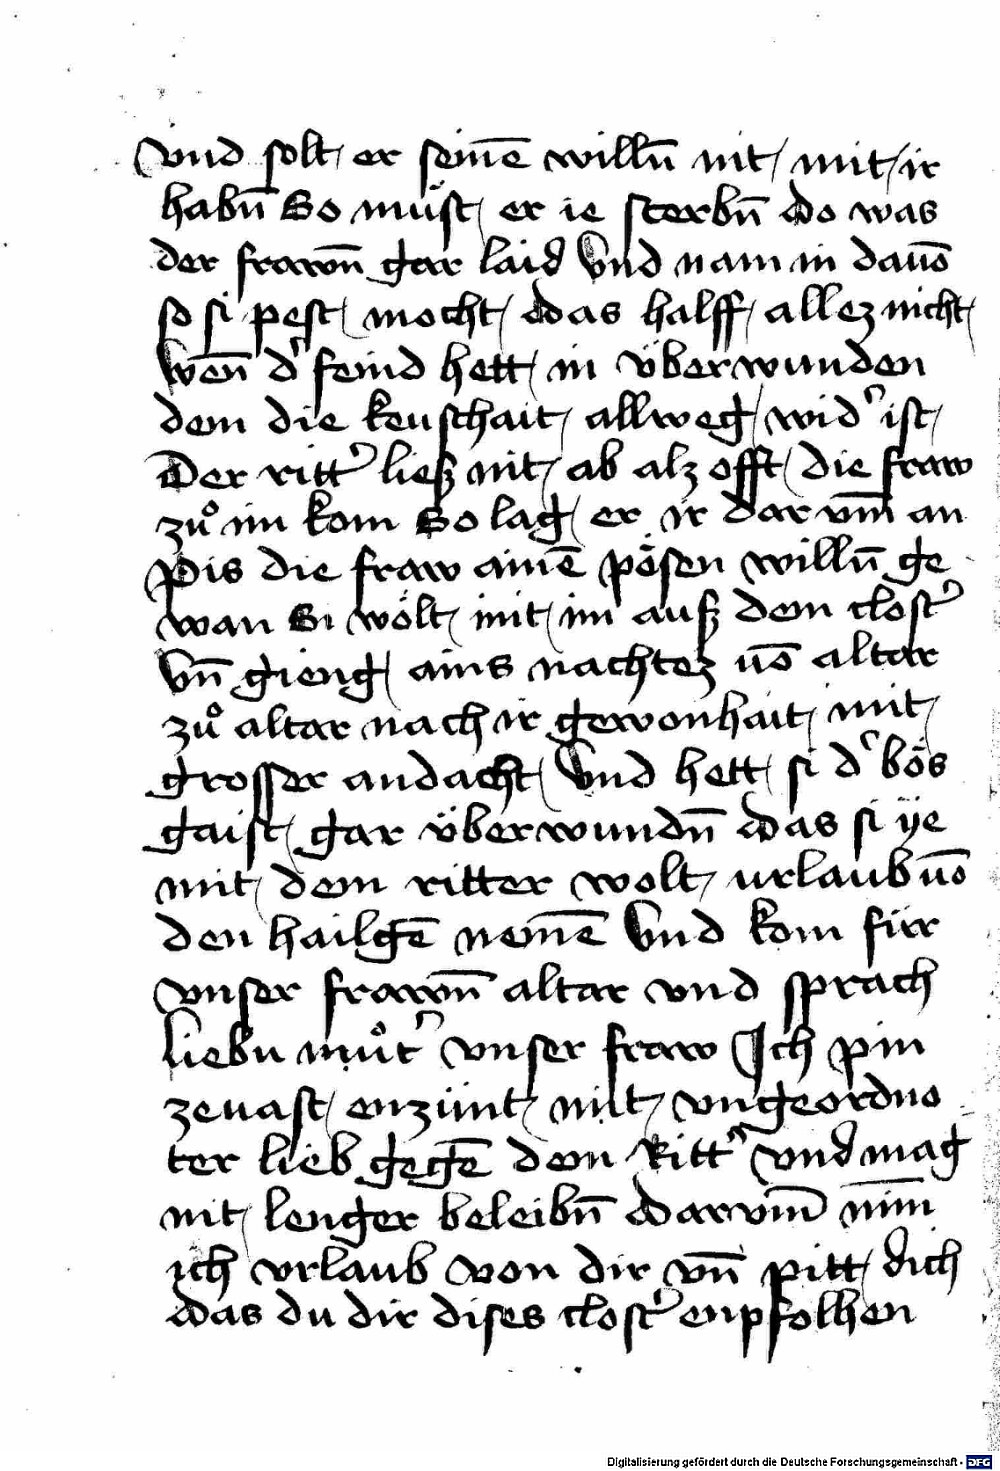 vnd solt er seinē willn̄ nit mit ir
habn̄ So müst er ie sterbn̄ do was
der frawn̄ gar laid Vnd nam in dauō
so si pest mocht das halff allez nicht
Wen̄ d' feind hett in überwunden
dem die keuschait allweg wid' ist
Der ritt' liesz nit ab alz offt die fraw
zů im kom So lag er ir darvm̄ an
Pis die fraw ainē pösen willn̄ ge
wan Si wölt mit im ausz dem clost'
Vn̄ gieng ains nachtez uō altar
zů altar nach ir gewonhait mit
grosser andacht Vnd hett si d' bös
gaist gar überwundn̄ das si ÿe
mit dem ritter wolt urlaub uō
den hailgē nemē Vnd kom für
vnser frawn̄ altar vnd sprach
liebu můt' vnser fraw Ich pin
zeuast enzünt mit vngeordno
ter lieb gegē dem Ritt' vnd mag
nit lenger beleibn̄ darvm̄ nim̄
ich vrlaub von dir vn̄ pitt dich
das du dir dises clost' enpfolhen
Digitalisierung gefördert durch die Deutsche Forschungsgemeinschaft - DFG